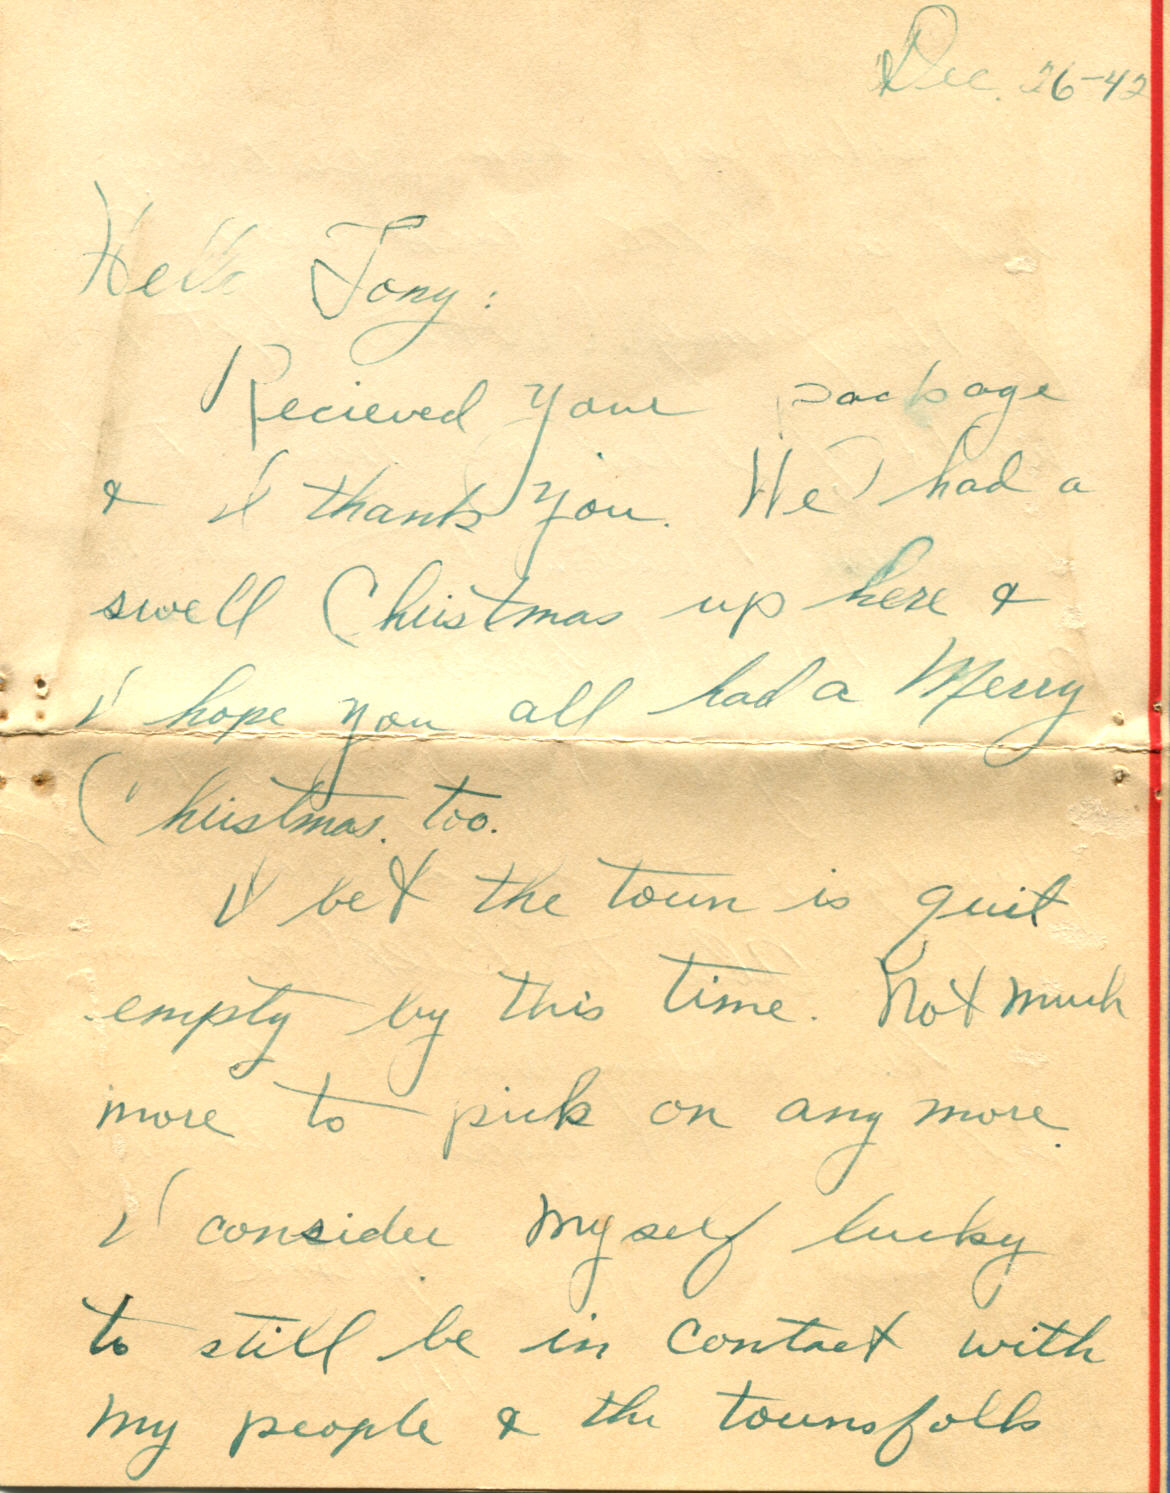 Dec. 26-42
Hello Tony:
Recieved your package
& I thank you. We had a
swell Christmas up here &
I hope you all had a Merry
Christmas. too.
I bet the town is quit
empty by this time. Not much
more to pick on any more.
I consider myself lucky
to still be in contact with
my people & the townsfolks